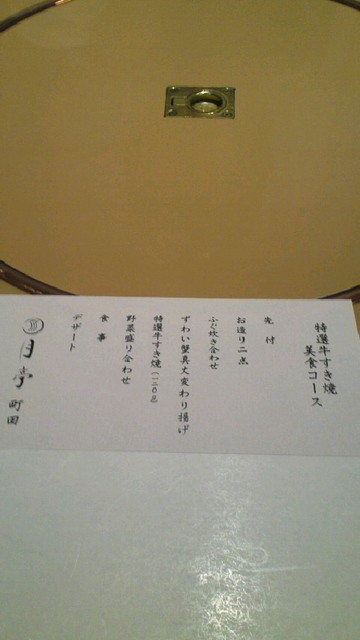 特選牛すき焼
美食コース
先付
お造り二点
ふぐ炊き合わせ
ずわい蟹真丈変わり揚げ
特選牛すき焼(一二〇g)
野菜盛り合わせ
食事
デザート
月亭 町田